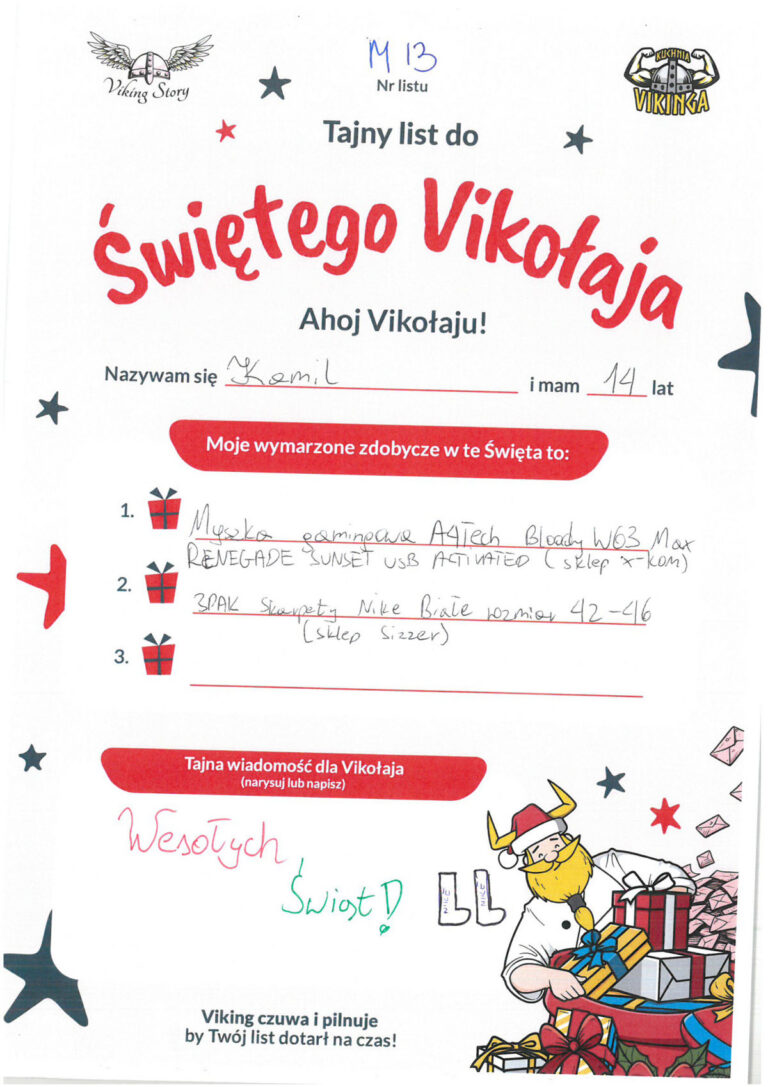 Viking Story
M 13
Nr listu
KUCHNIA
VIKINGA
Tajny list do
Świętego Vikołaja
Ahoj Vikołaju!
Nazywam się Kamil i mam 14 lat
Moje wymarzone zdobycze w te Święta to:
1. Myszka gamingowa A4Tech Bloody W63 Max
RENEGADE SUNSET USB ACTIVATED (sklep x-kom)
2. 3PAK Skarpety Nike Białe rozmiar 42-46
(sklep Sizzer)
3.
Tajna wiadomość dla Vikołaja
(narysuj lub napisz)
Wesołych
Świąt!
NIKE NIKE
Viking czuwa i pilnuje
by Twój list dotarł na czas!